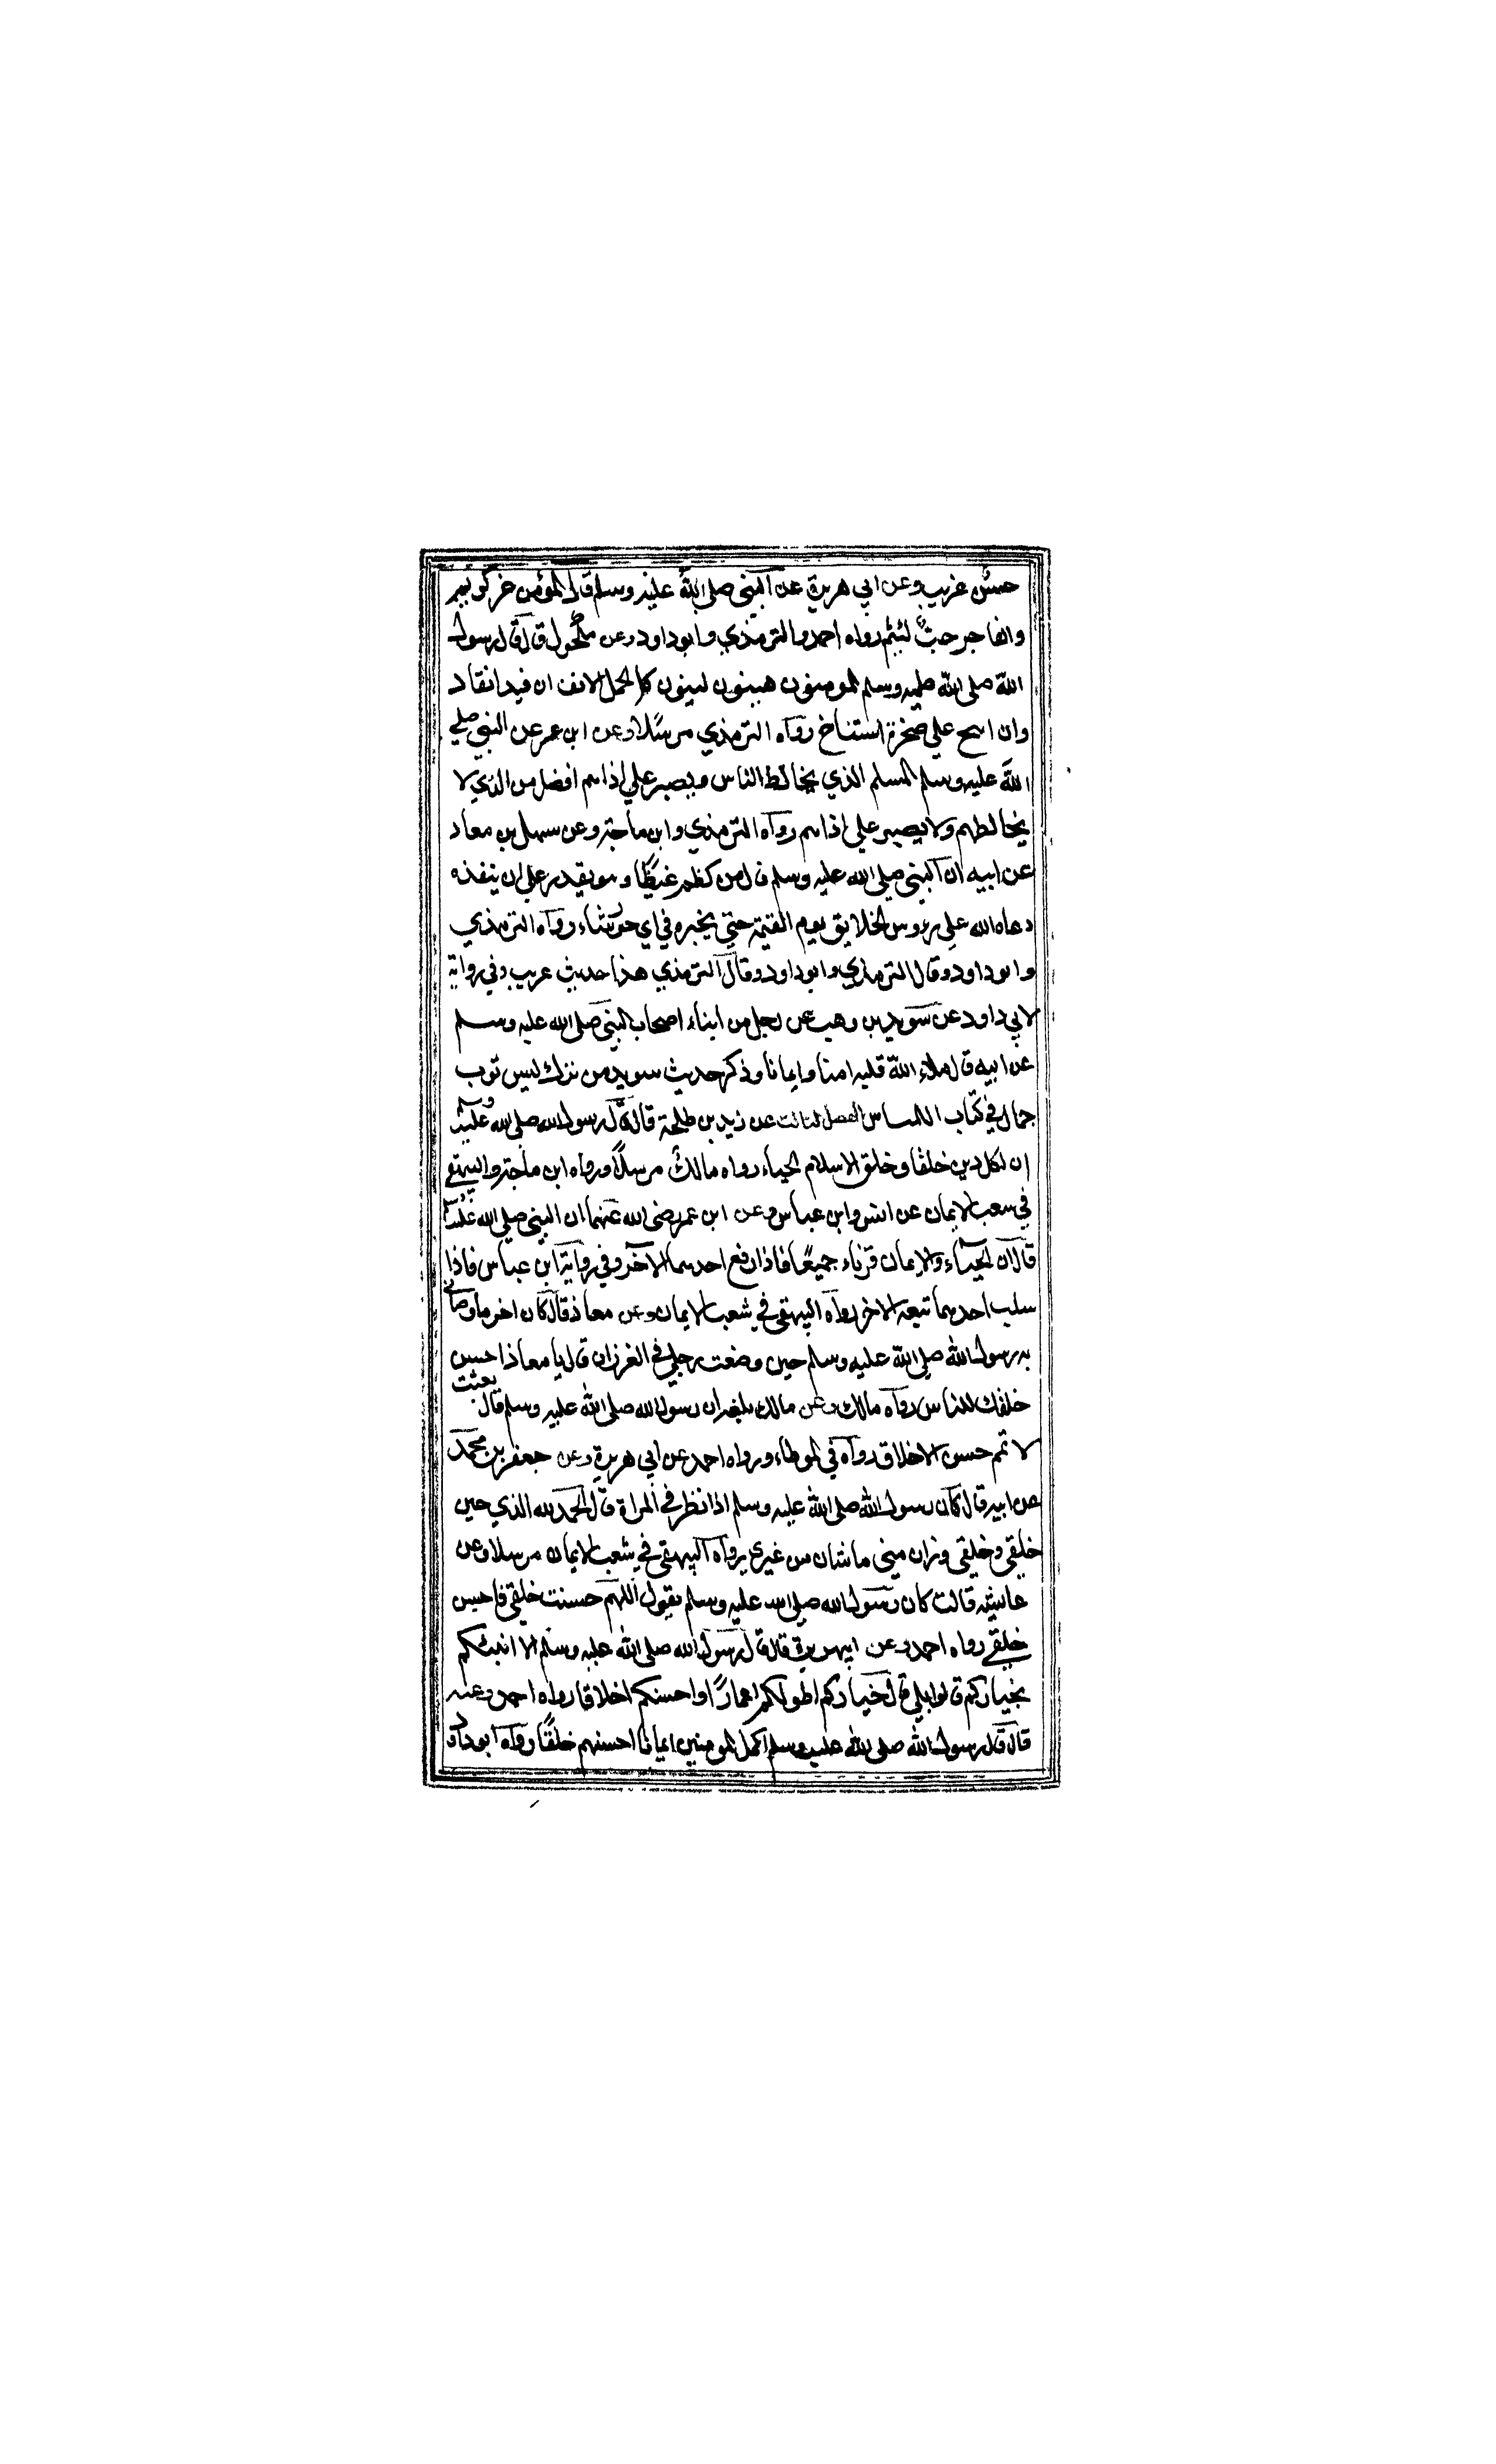 حسن غريب وعن ابي هريرة عن النبي صلى الله عليه وسلم قال المؤمن غر كريم
والفاجر خب لئيم رواه احمد والترمذي وابو داود وعن مكحول قال قال رسول
الله صلى الله عليه وسلم المومنون هينون لينون كالجمل الانف ان قيد انقاد
وان انيخ علي صخرة استناخ رواه الترمذي مرسلا وعن ابن عمر عن النبي صلي
الله عليه وسلم المسلم الذي يخالط الناس ويصبر علي اذاهم افضل من الذي لا
يخالطهم ولا يصبر علي اذاهم رواه الترمذي وابن ماجة وعن سهل بن معاد
عن ابيه ان النبي صلي الله عليه وسلم قال من كظم غيظا وهو يقدر علي ان ينفذه
دعاه الله علي رءوس الخلايق يوم القيمة حتي يخيره في اي حور شاء رواه الترمذي
وابو داود وقال الترمذي وابو داود وقال الترمذي هذا حديث غريب وفي رواية
لابي داود عن سويد بن وهب عن رجل من ابناء اصحاب النبي صلى الله عليه وسلم
عن ابيه قال ملاء الله قلبه امنا وايمانا وذكر حديث سويد من ترك لبس ثوب
جمال في كتاب اللباس الفصل الثالث عن زيد بن طلحة قال قال رسول الله صلي الله عليه وسلم
ان لكل دين خلقا وخلق الاسلام الحياء رواه مالك مرسلا ورواه ابن ماجة والبيهقي
في سعب الايمان عن انس وابن عباس وعن ابن عمر رضي الله عنهما ان النبي صلي الله عليه وسلم
قال ان الحياء والايمان قرناء جميعا فاذا رفع احدهما الاخر وفي رواية ابن عباس فاذا
سلب احدهما تبعه الاخر رواه البيهقي في شعب الايمان وعن معاذ قال كان اخر ما وصاني
به رسول الله صلي الله عليه وسلم حين وضعت رجلي في الغرز ان قال يا معاذ احسن
خلقك للناس رواه مالك وعن مالك بلغه ان رسول الله صلى الله عليه وسلم قال بعثت
لا تمم حسن الاخلاق رواه في الموطاء ورواه احمد عن ابي هريرة وعن جعفر بن محمد
عن ابيه قال كان رسول الله صلى الله عليه وسلم اذا نظر في المراة قال الحمد لله الذي حسن
خلقي وخلقي وزان مني ما شان من غيري رواه البيهقي في شعب الايمان مرسلا وعن
عايشه قالت كان رسول الله صلي الله عليه وسلم يقول اللهم حسنت خلقي فاحسن
خلقي رواه احمد وعن ابي هريرة قال قال رسول الله صلى الله عليه وسلم الا انبئكم
بخياركم قالوا بلي قال خياركم اطولكم اعمارا واحسنكم اخلاقا رواه احمد وعنه
قال قال رسول الله صلي الله عليه وسلم اكمل المومنين ايمانا احسنهم خلقا رواه ابو داود